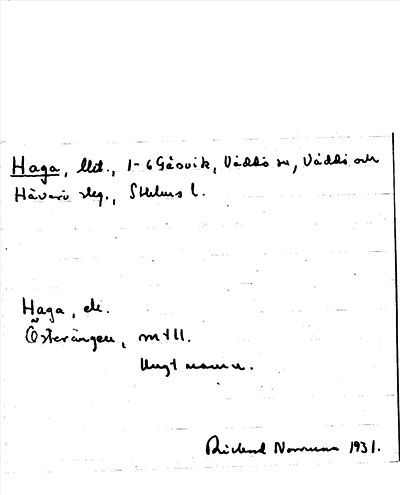 Haga, llt., 1-6 Gåsvik, Väddö sn, Väddö och
Häverö slg., Sthlms l.
Haga, ds.
Österängen, mtll.
Ungt namn.
Rickard Norrman 1931.